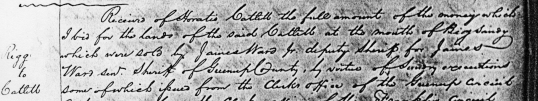 Received of Horatio Catlett the full amount of the money which
I bid for the lands of the said Catlett at the mouth of Big Sandy
Rigg
to
Catlett
which were sold by James Ward Jr. deputy Sheriff for James
Ward senr. Sheriff of Greenup County, by virtue of sundry executions
some of which issued from the Clerks office of the Greenup Circuit